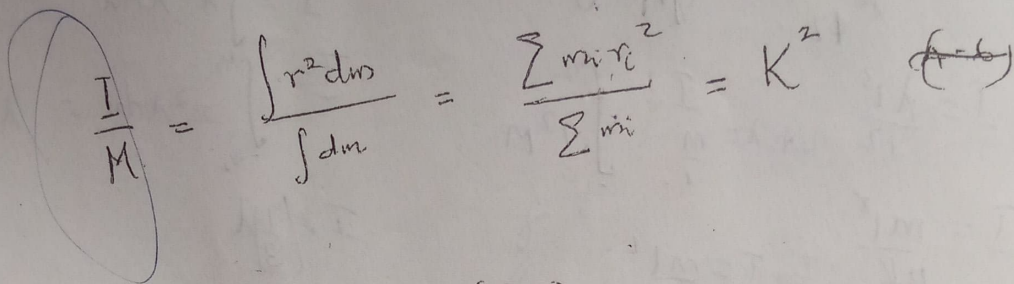 I/M = ∫r²dm / ∫dm = ∑mᵢrᵢ² / ∑mᵢ = K²